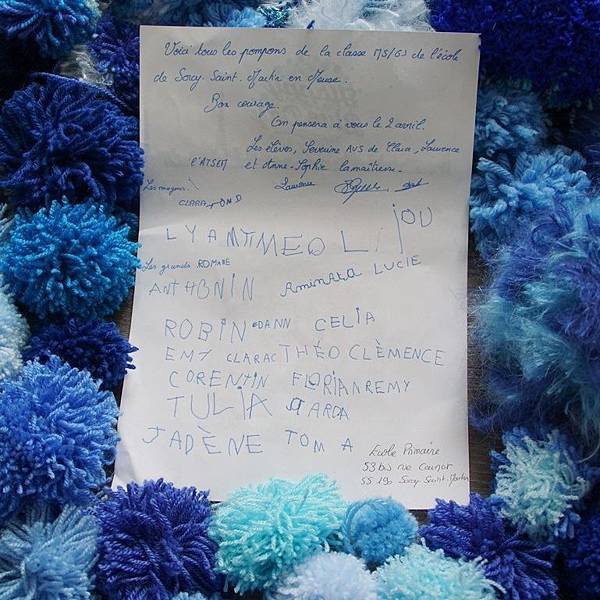 Voici tous les pompons de la classe MS/GS de l'école
de Sorcy-Saint-Martin en Meuse.
Bon courage.
On pensera à vous le 2 avril.
Les élèves, Severine AVS de Clara, Laurence
l'ATSEM et Anne-Sophie la maîtresse.
Les moyens : Laurence
CLARA
LYAM TIMEO LiJOU
Les grands ROMANE
ANTHONIN AMiNATA LUCIE
ROBIN DANN CELIA
EMY CLARAC THÉO CLÈMENCE
CORENTIN FLORIAN REMY
TULIA
JADÈNE TOM A
Ecole Primaire
53 bis rue Carnot
55 190 Sorcy Saint-Martin